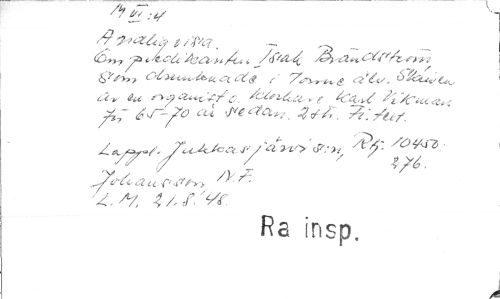 M VI:4
Andlig visa.
Om predikanten Isak Brändström,
som drunknade i Torne älv. Skriven
av en organist o. klockare Karl Vikman
för 65-70 år sedan. 2 str. Fi. text.
Lappl. Jukkasjärvi sn, Rtj. 10450.
276.
Johansson, N.F.
L.M. 21.8.48.
Ra insp.